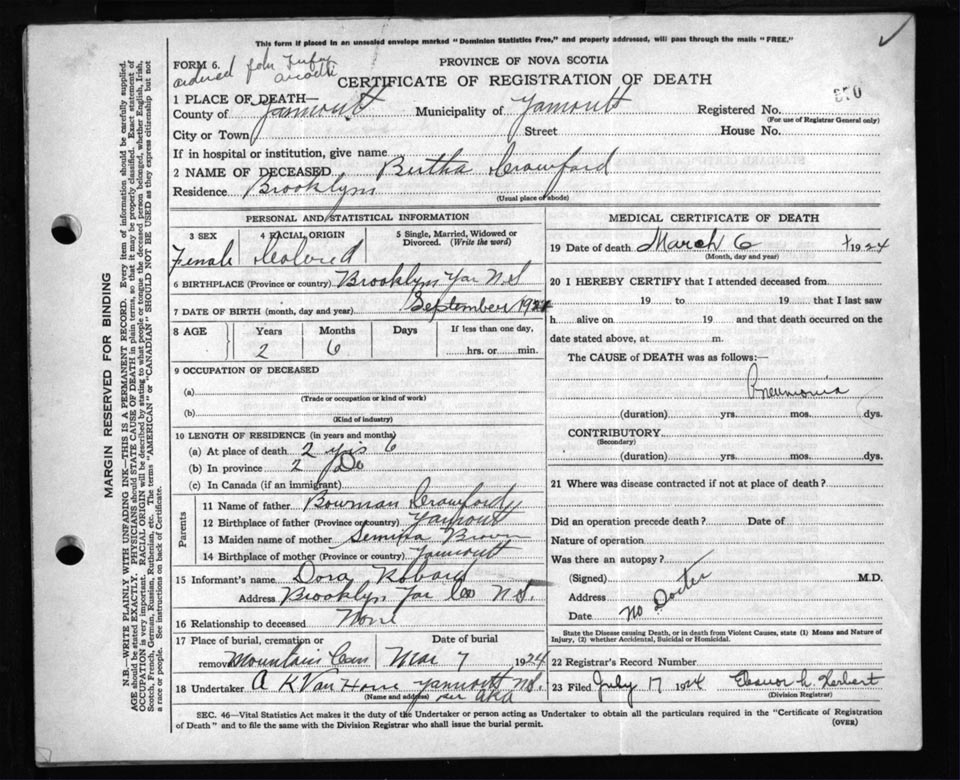 This form if placed in an unsealed envelope marked "Dominion Statistics Free," and properly addressed, will pass through the mails "FREE."
FORM 6.
PROVINCE OF NOVA SCOTIA
CERTIFICATE OF REGISTRATION OF DEATH
1 PLACE OF DEATH—
County of Yarmouth Municipality of Yarmouth Registered No.
(For use of Registrar General only)
City or Town Street House No.
If in hospital or institution, give name
2 NAME OF DECEASED Bertha Crawford
Residence Brooklyn
(Usual place of abode)
PERSONAL AND STATISTICAL INFORMATION
3 SEX 4 RACIAL ORIGIN 5 Single, Married, Widowed or Divorced. (Write the word)
Female Colored
6 BIRTHPLACE (Province or country) Brooklyn Yar N.S
7 DATE OF BIRTH (month, day and year) September 1921
8 AGE Years Months Days If less than one day,
2 6 hrs. or min.
9 OCCUPATION OF DECEASED
(a)
(Trade or occupation or kind of work)
(b)
(Kind of industry)
10 LENGTH OF RESIDENCE (in years and months)
(a) At place of death 2 yrs 6
(b) In province 2 Do
(c) In Canada (if an immigrant)
Parents
11 Name of father Bowman Crawford
12 Birthplace of father (Province or country) Yarmouth
13 Maiden name of mother Brown
14 Birthplace of mother (Province or country) Yarmouth
15 Informant's name Dora
Address Brooklyn Yar Co N.S.
16 Relationship to deceased None
17 Place of burial, cremation or removal Date of burial
Mountain Cem Mar 7 1924
18 Undertaker A K Van Horne Yarmouth N.S.
(Name and address) per AKA
MEDICAL CERTIFICATE OF DEATH
19 Date of death March 6 1924
(Month, day and year)
20 I HEREBY CERTIFY that I attended deceased from
19 to 19 that I last saw
h alive on 19 and that death occurred on the
date stated above, at m.
The CAUSE of DEATH was as follows:—
Pneumonia
(duration) yrs. mos. dys.
CONTRIBUTORY
(Secondary)
(duration) yrs. mos. dys.
21 Where was disease contracted if not at place of death?
Did an operation precede death? Date of
Nature of operation
Was there an autopsy?
(Signed) M.D.
Address
Date No Docter
State the Disease causing Death, or in deaths from Violent Causes, state (1) Means and Nature of Injury, (2) whether Accidental, Suicidal or Homicidal.
22 Registrar's Record Number
23 Filed July 17 1924 Eleanor L. Herbert
(Division Registrar)
SEC. 46—Vital Statistics Act makes it the duty of the Undertaker or person acting as Undertaker to obtain all the particulars required in the "Certificate of Registration
of Death" and to file the same with the Division Registrar who must issue the burial permit.
(OVER)
MARGIN RESERVED FOR BINDING
N.B.—WRITE PLAINLY WITH UNFADING INK—THIS IS A PERMANENT RECORD. Every item of information should be carefully supplied.
AGE should be stated EXACTLY. PHYSICIANS should STATE CAUSE OF DEATH in plain terms, so that it may be properly classified. Exact statement of
OCCUPATION is very important. RACIAL ORIGIN will be described by stating to what people or tongue the deceased person belonged, whether English, Irish,
Scotch, French, German, Russian, Ruthenian, etc. The terms "AMERICAN" or "CANADIAN" SHOULD NOT BE USED as they express citizenship but not
a race or people. See instructions on back of Certificate.